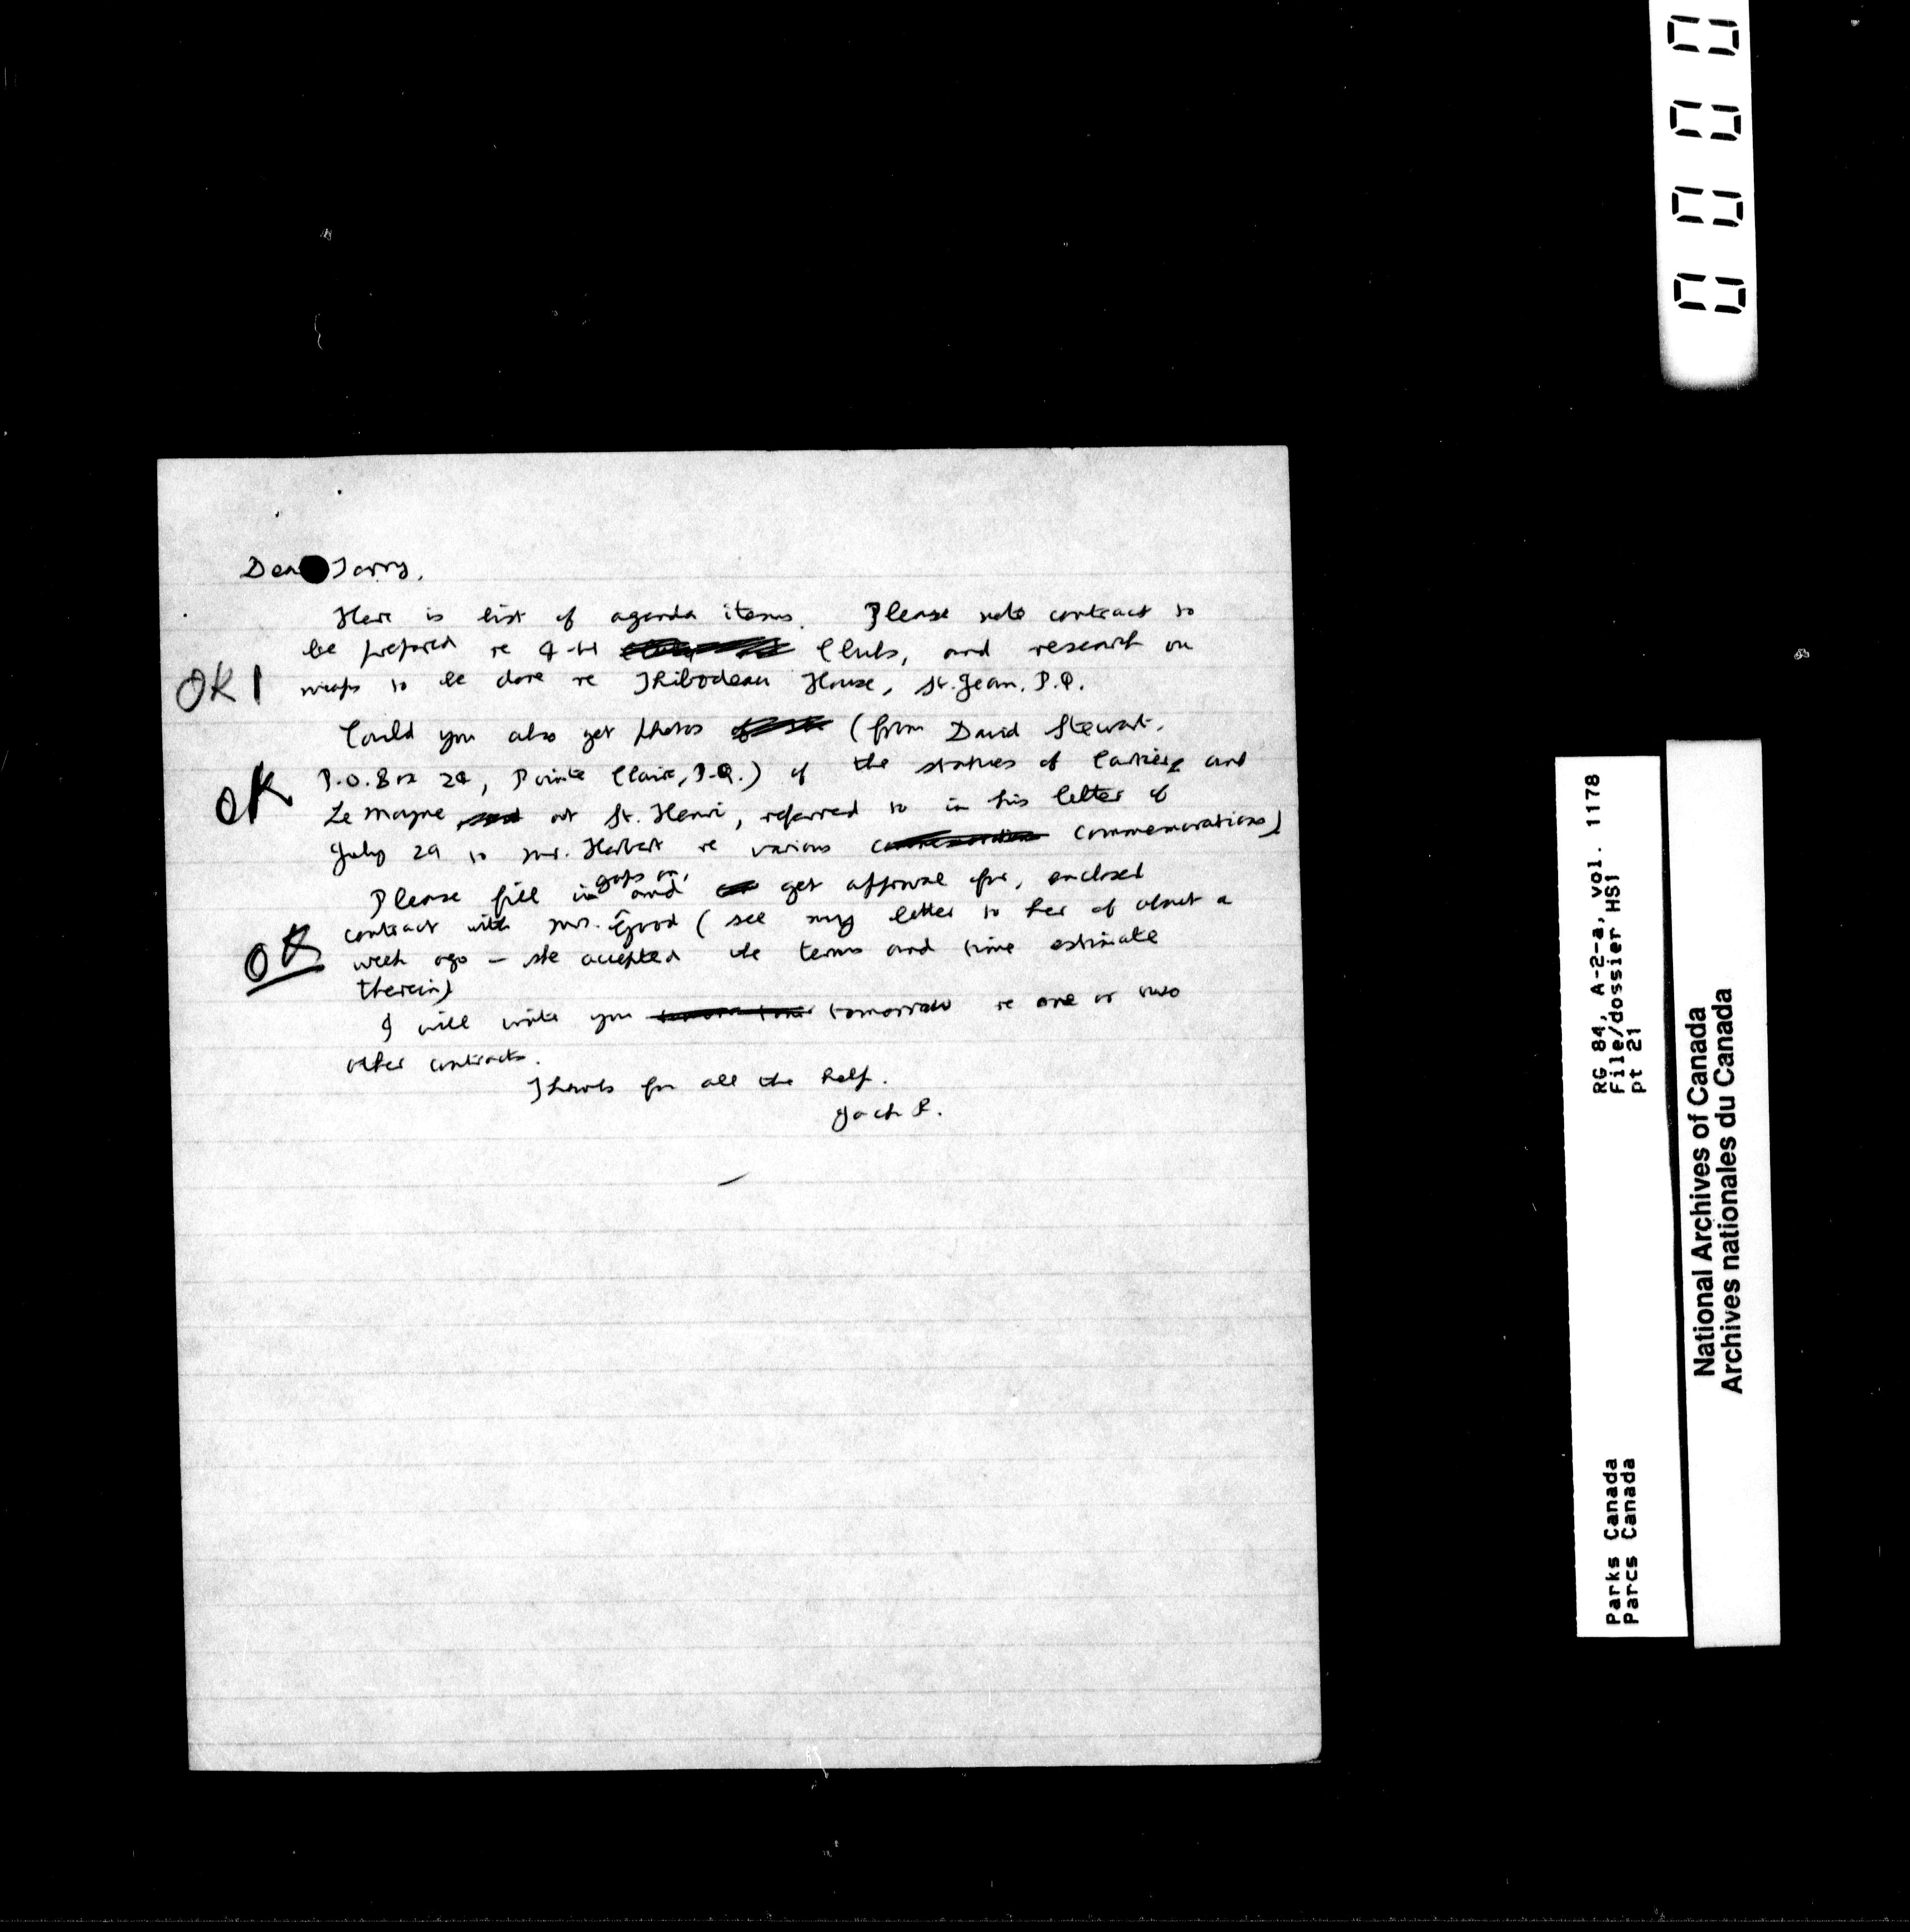 Dear Jarry,
Here is list of agenda items. Please note contract to
be prepared re 4-H Clubs, and research on
OK! maps to be done re Thibodeau House, St. Jean, P.Q.
Could you also get photos (from David Stewart,
OK P.O. Box 24, Pointe Claire, P.Q.) of the statues of Cartier and
Le Moyne at St. Henri, referred to in his letter of
July 29 to Mr. Herbert re various commemorations)
Please fill in gaps on, and get approval for, enclosed
contract with Mrs. Good (see my letter to her of about a
OK week ago – she accepted the terms and time estimate
therein)
I will write you tomorrow re one or two
other contracts.
Thanks for all the help.
Jack R.
0000
RG 84, A-2-a, vol. 1178
File/dossier HS1
pt 21
Parks Canada
Parcs Canada
National Archives of Canada
Archives nationales du Canada